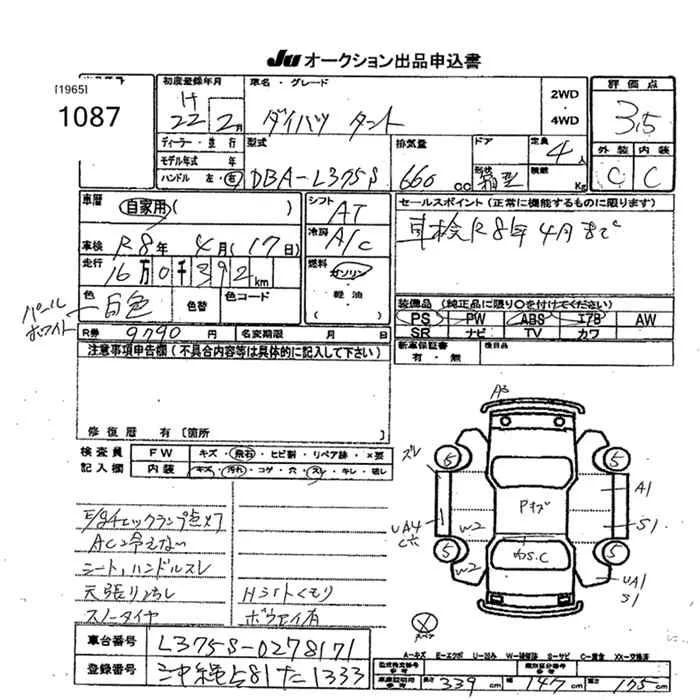 JU オークション出品申込書
[1965]
1087
初度登録年月 車名・グレード 2WD ・ 4WD 評価点
H22 2月 ダイハツ タント 3.5
ディーラー・並行 型式 排気量 ドア 定員 4人 外装 内装
モデル年式 年
ハンドル 左・右 DBA-L375S 660cc 形状 箱型 積載 Kg C C
車歴 自家用 ( ) シフト AT セールスポイント (正常に機能するものに限ります)
車検 R8年 4月(17日) 冷房 A/C 車検R8年4月まで
走行 16万0千392km 燃料 ガソリン・軽油 ( )
パールホワイト
色 白色 色替 色コード 装備品 (純正品に限り○を付けてください)
PS PW ABS エアB AW
R券 9790円 名変期限 月 日 SR ナビ TV カワ
注意事項申告欄 (不具合内容等は具体的に記入して下さい) 新車保証書 有・無 後日品
修復歴 有 [箇所
検査員 FW キズ・飛石・ヒビ割・リペア跡・×要
記入欄 内装 キズ・汚れ・コゲ・穴・スレ・キレ・破レ
E/gチェックランプ点灯
ACひえない
シート、ハンドルスレ
天張りよごし Hライトくもり
スノータイヤ
A3
ズレ 5 5
A1
UA4 Pキズ
W2 S1
5 5
W2 UA1
S1
スペア
A-キズ E-エクボ U-凹み W-補修跡 S-サビ C-腐食 XX-交換済
車台番号 L375S-0278171
登録番号 沖縄581た1333
車庫証明用参考 長さ 339cm 幅 147cm 高さ 175cm